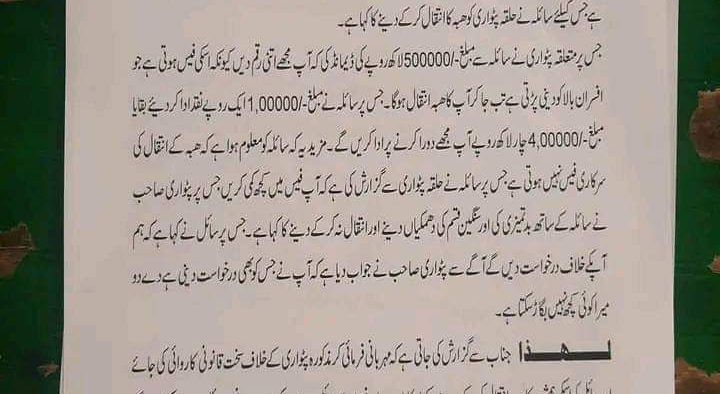 ہے جس کیلئے سائلہ نے حلقہ پٹواری کو ھبہ کا انتقال کر کے دینے کا کہا ہے۔
جس پر متعلقہ پٹواری نے سائلہ سے مبلغ -/500000 لاکھ روپے کی ڈیمانڈ کی کہ آپ مجھے اتنی رقم دیں کیونکہ اسکی فیس ہوتی ہے جو
افسران بالا کو دینی پڑتی ہے تب جا کر آپکا ھبہ انتقال ہوگا۔ جس پر سائلہ نے مبلغ -/1,00000 ایک روپے نقد ادا کر دیئے بقایا
مبلغ -/4,00000 چار لاکھ روپے آپ مجھے دورا کرنے پر ادا کریں گے۔ مزید یہ کہ سائلہ کو معلوم ہوا ہے کہ ھبہ کے انتقال کی
سرکاری فیس نہیں ہوتی ہے جس پر سائلہ نے حلقہ پٹواری سے گزارش کی ہے کہ آپ فیس میں کچھ کمی کریں جس پر پٹواری صاحب
نے سائلہ کے ساتھ بدتمیزی کی اور سنگین قسم کی دھمکیاں دینے اور انتقال نہ کر کے دینے کا کہا ہے۔ جس پر سائل نے کہا ہے کہ ہم
آپکے خلاف درخواست دیں گے آگے سے پٹواری صاحب نے جواب دیا ہے کہ آپ نے جس کو بھی درخواست دینی ہے دے دو
میرا کوئی کچھ نہیں بگاڑ سکتا ہے۔
لہذا جناب سے گزارش کی جاتی ہے کہ مہربانی فرمائی کر مذکورہ پٹواری کے خلاف سخت قانونی کاروائی کی جائے